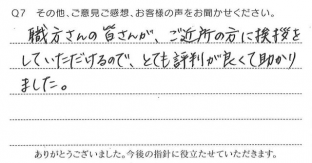 Q7 その他、ご意見ご感想、お客様の声をお聞かせください。
職方さんの皆さんが、ご近所の方に挨拶を
していただけるので、とても評判が良くて助かり
ました。
ありがとうございました。今後の指針に役立たせていただきます。